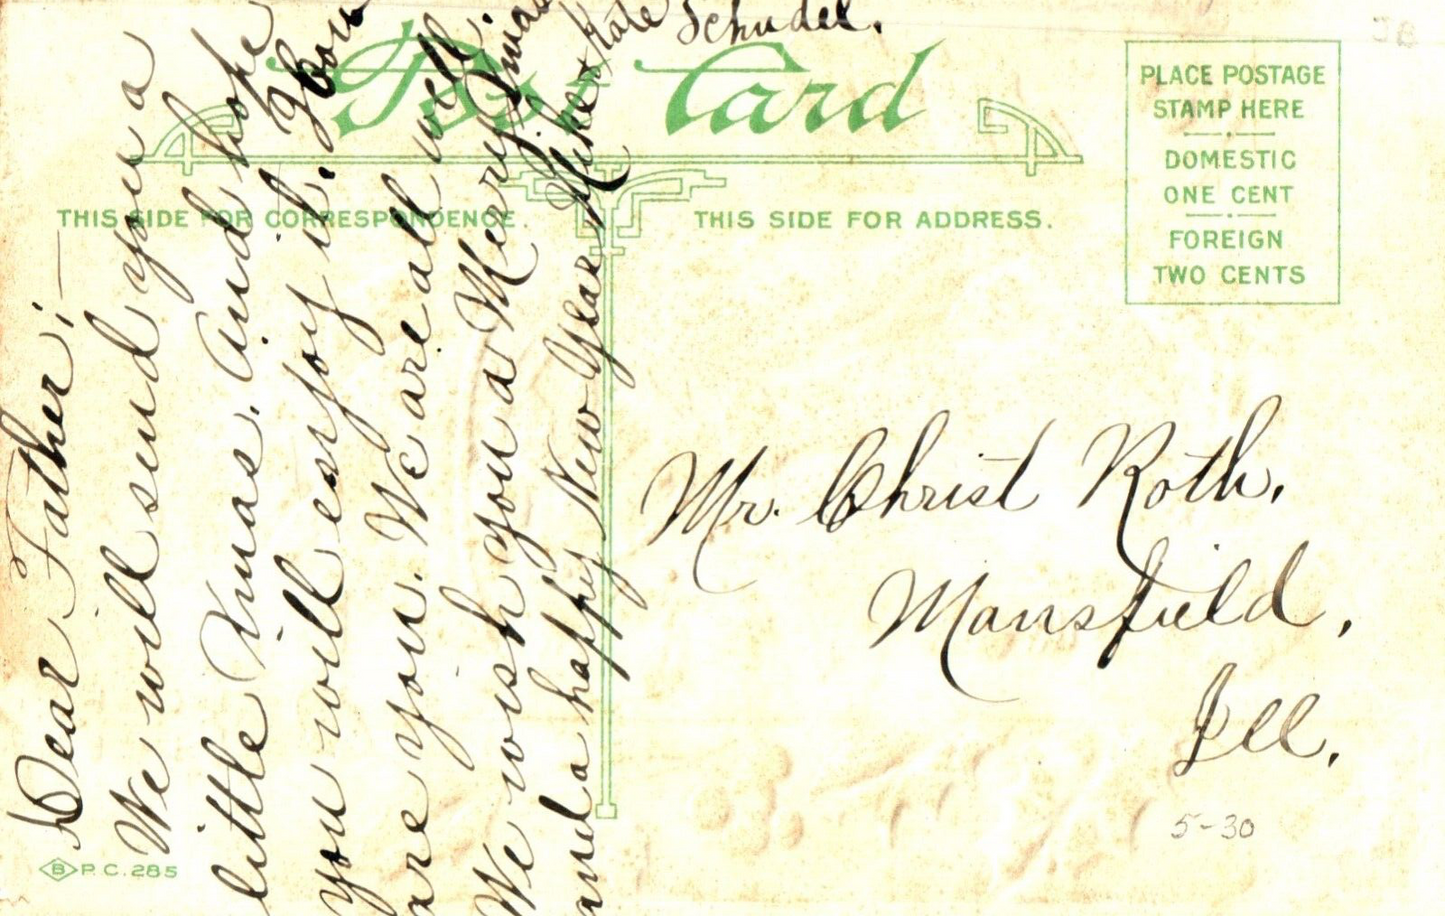 Post Card
THIS SIDE FOR CORRESPONDENCE.
THIS SIDE FOR ADDRESS.
PLACE POSTAGE
STAMP HERE
DOMESTIC
ONE CENT
FOREIGN
TWO CENTS
Dear Father;—
We will send you a
little Xmas. And hope
you will enjoy it. How
are you. We are all well.
We wish you a Merry Xmas
and a happy New Year Mike & Kate Schudel.
Mr. Christ Roth.
Mansfield,
Ill.
5-30
B P.C. 285